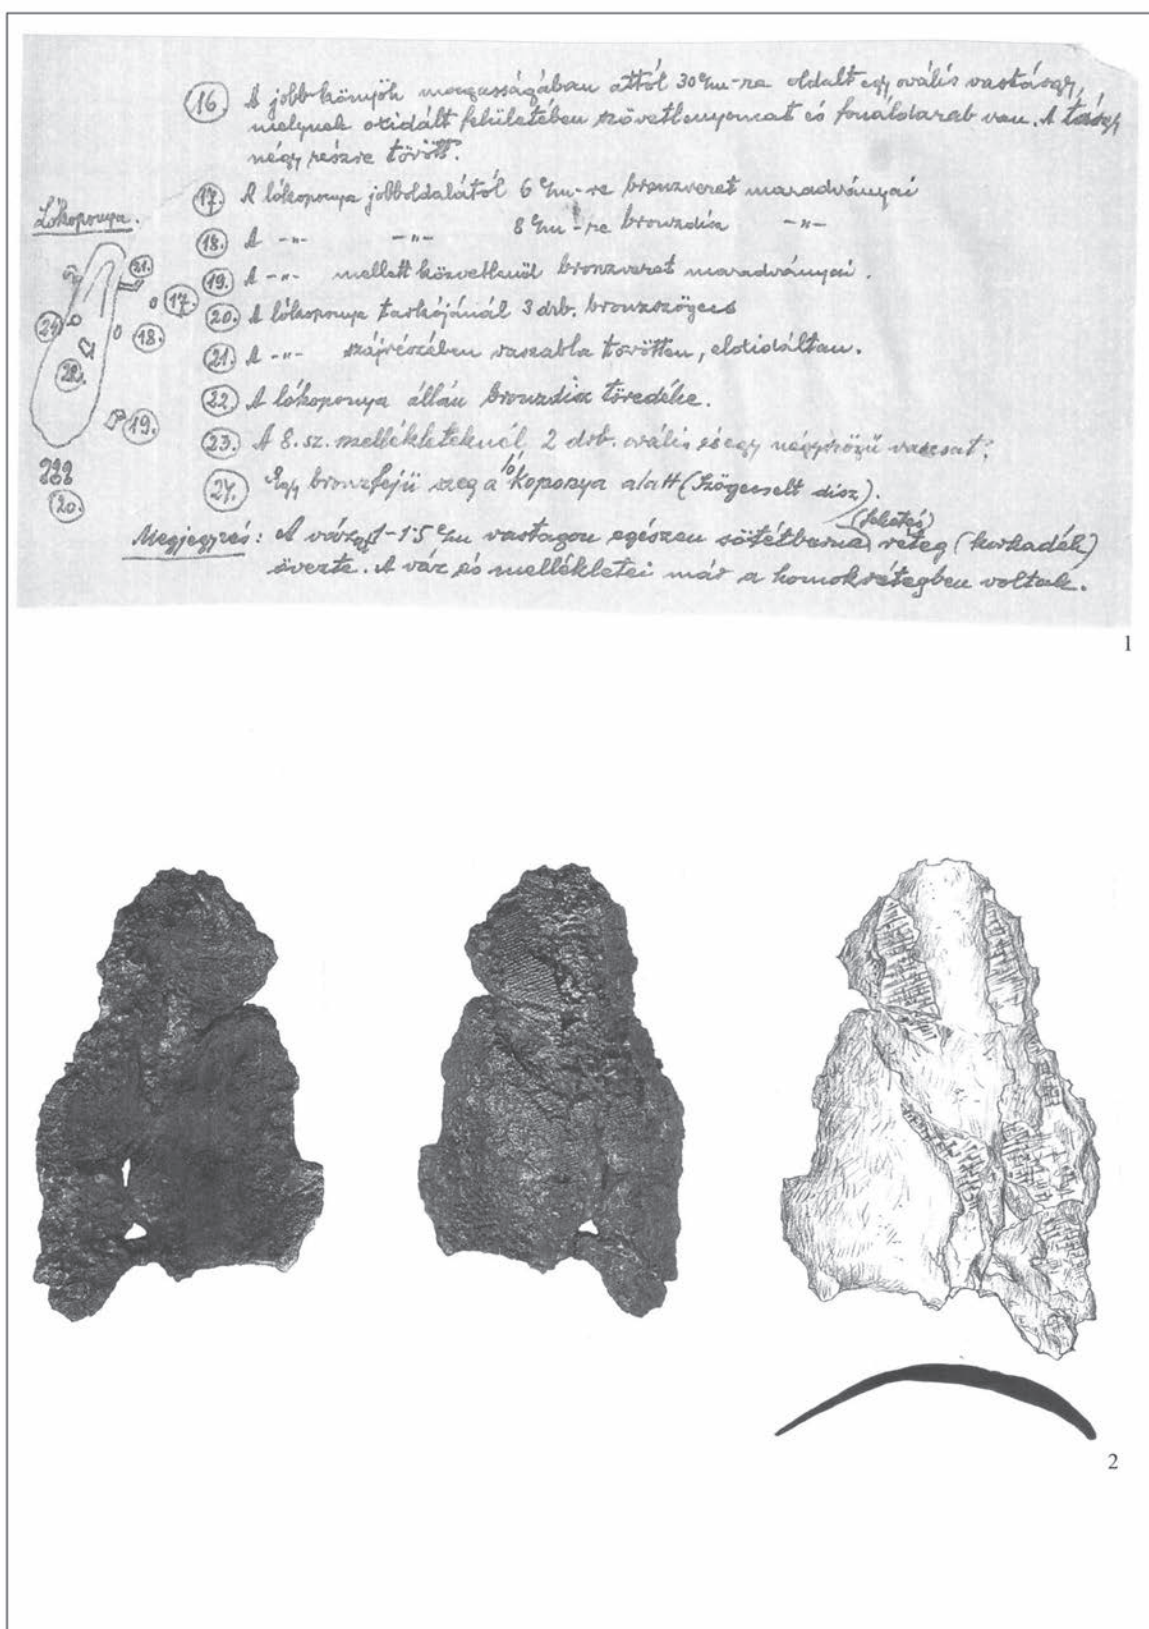 16. A jobb könyök magasságában attól 30 c/m-re oldalt egy ovális vastárgy,
melynek oxidált felületében szövetlenyomat és fonáldarab van. A tárgy
négy részre törött.
Lókoponya.
17. A lókoponya jobboldalától 6 c/m-re bronzveret maradványai
18. A -"- -"- 8 c/m-re bronzdísz -"-
19. A -"- mellett közvetlenül bronzveret maradványai.
20. A lókoponya tarkójánál 3 drb. bronzszögecs
21. A -"- szájrészében vaszabla törötten, eloxidáltan.
22. A lókoponya állán bronzdísz töredéke.
23. A 8. sz. mellékleteknél 2 drb. ovális és egy négyszögű vascsat.
24. Egy bronzfejű szeg a ló koponya alatt (Szögecselt dísz).
Megjegyzés: A vázat 1-1.5 c/m vastagon egészen sötétbarna (fekete) réteg (korhadék)
övezte. A váz és mellékletei már a homokrétegben voltak.
21.
17.
24
18.
22.
19.
20.
1
2